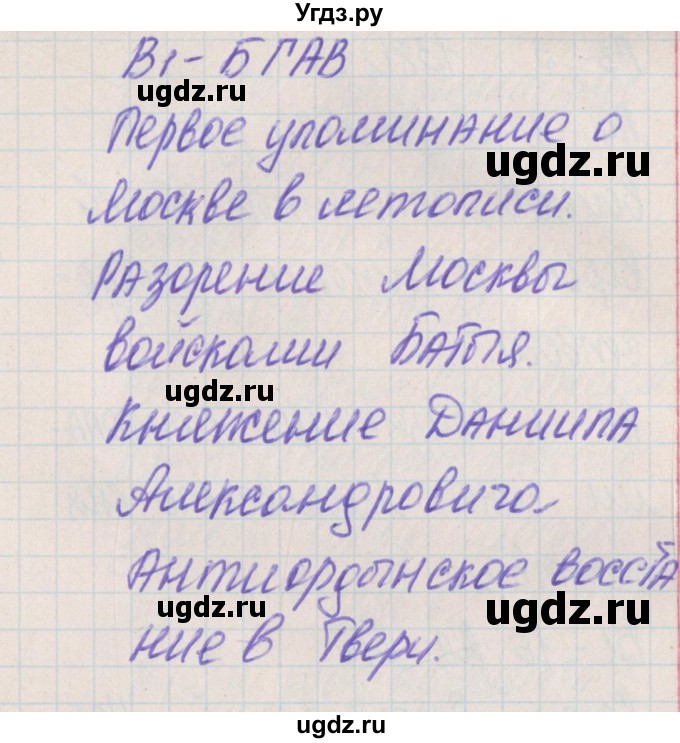 Угдз.ру
В1 - БГАВ
ugdz.ru
Первое упоминание о
ugdz.ru
Москве в летописи.
Разорение Москвы
войсками Батыя.
ugdz.ru
Княжение Даниила
Александровича
Антиордынское восста
ugdz.ru
ugdz.ru
ние в Твери.
ugdz.ru